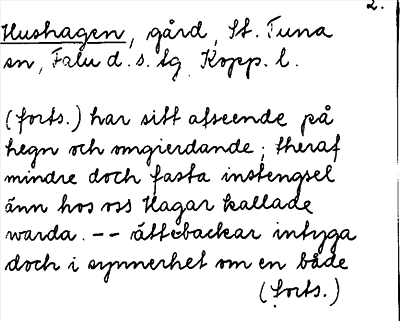 2.
Hushagen, gård, St. Tuna
sn, Falu d. s. tg Kopp. l.
(forts.) har sitt afseende på
hegn och omgierdande; theraf
mindre doch fasta instengsel
änn hos oss Hagar kallade
warda. -- ättebackar intyga
doch i synnerhet om en både
(forts.)